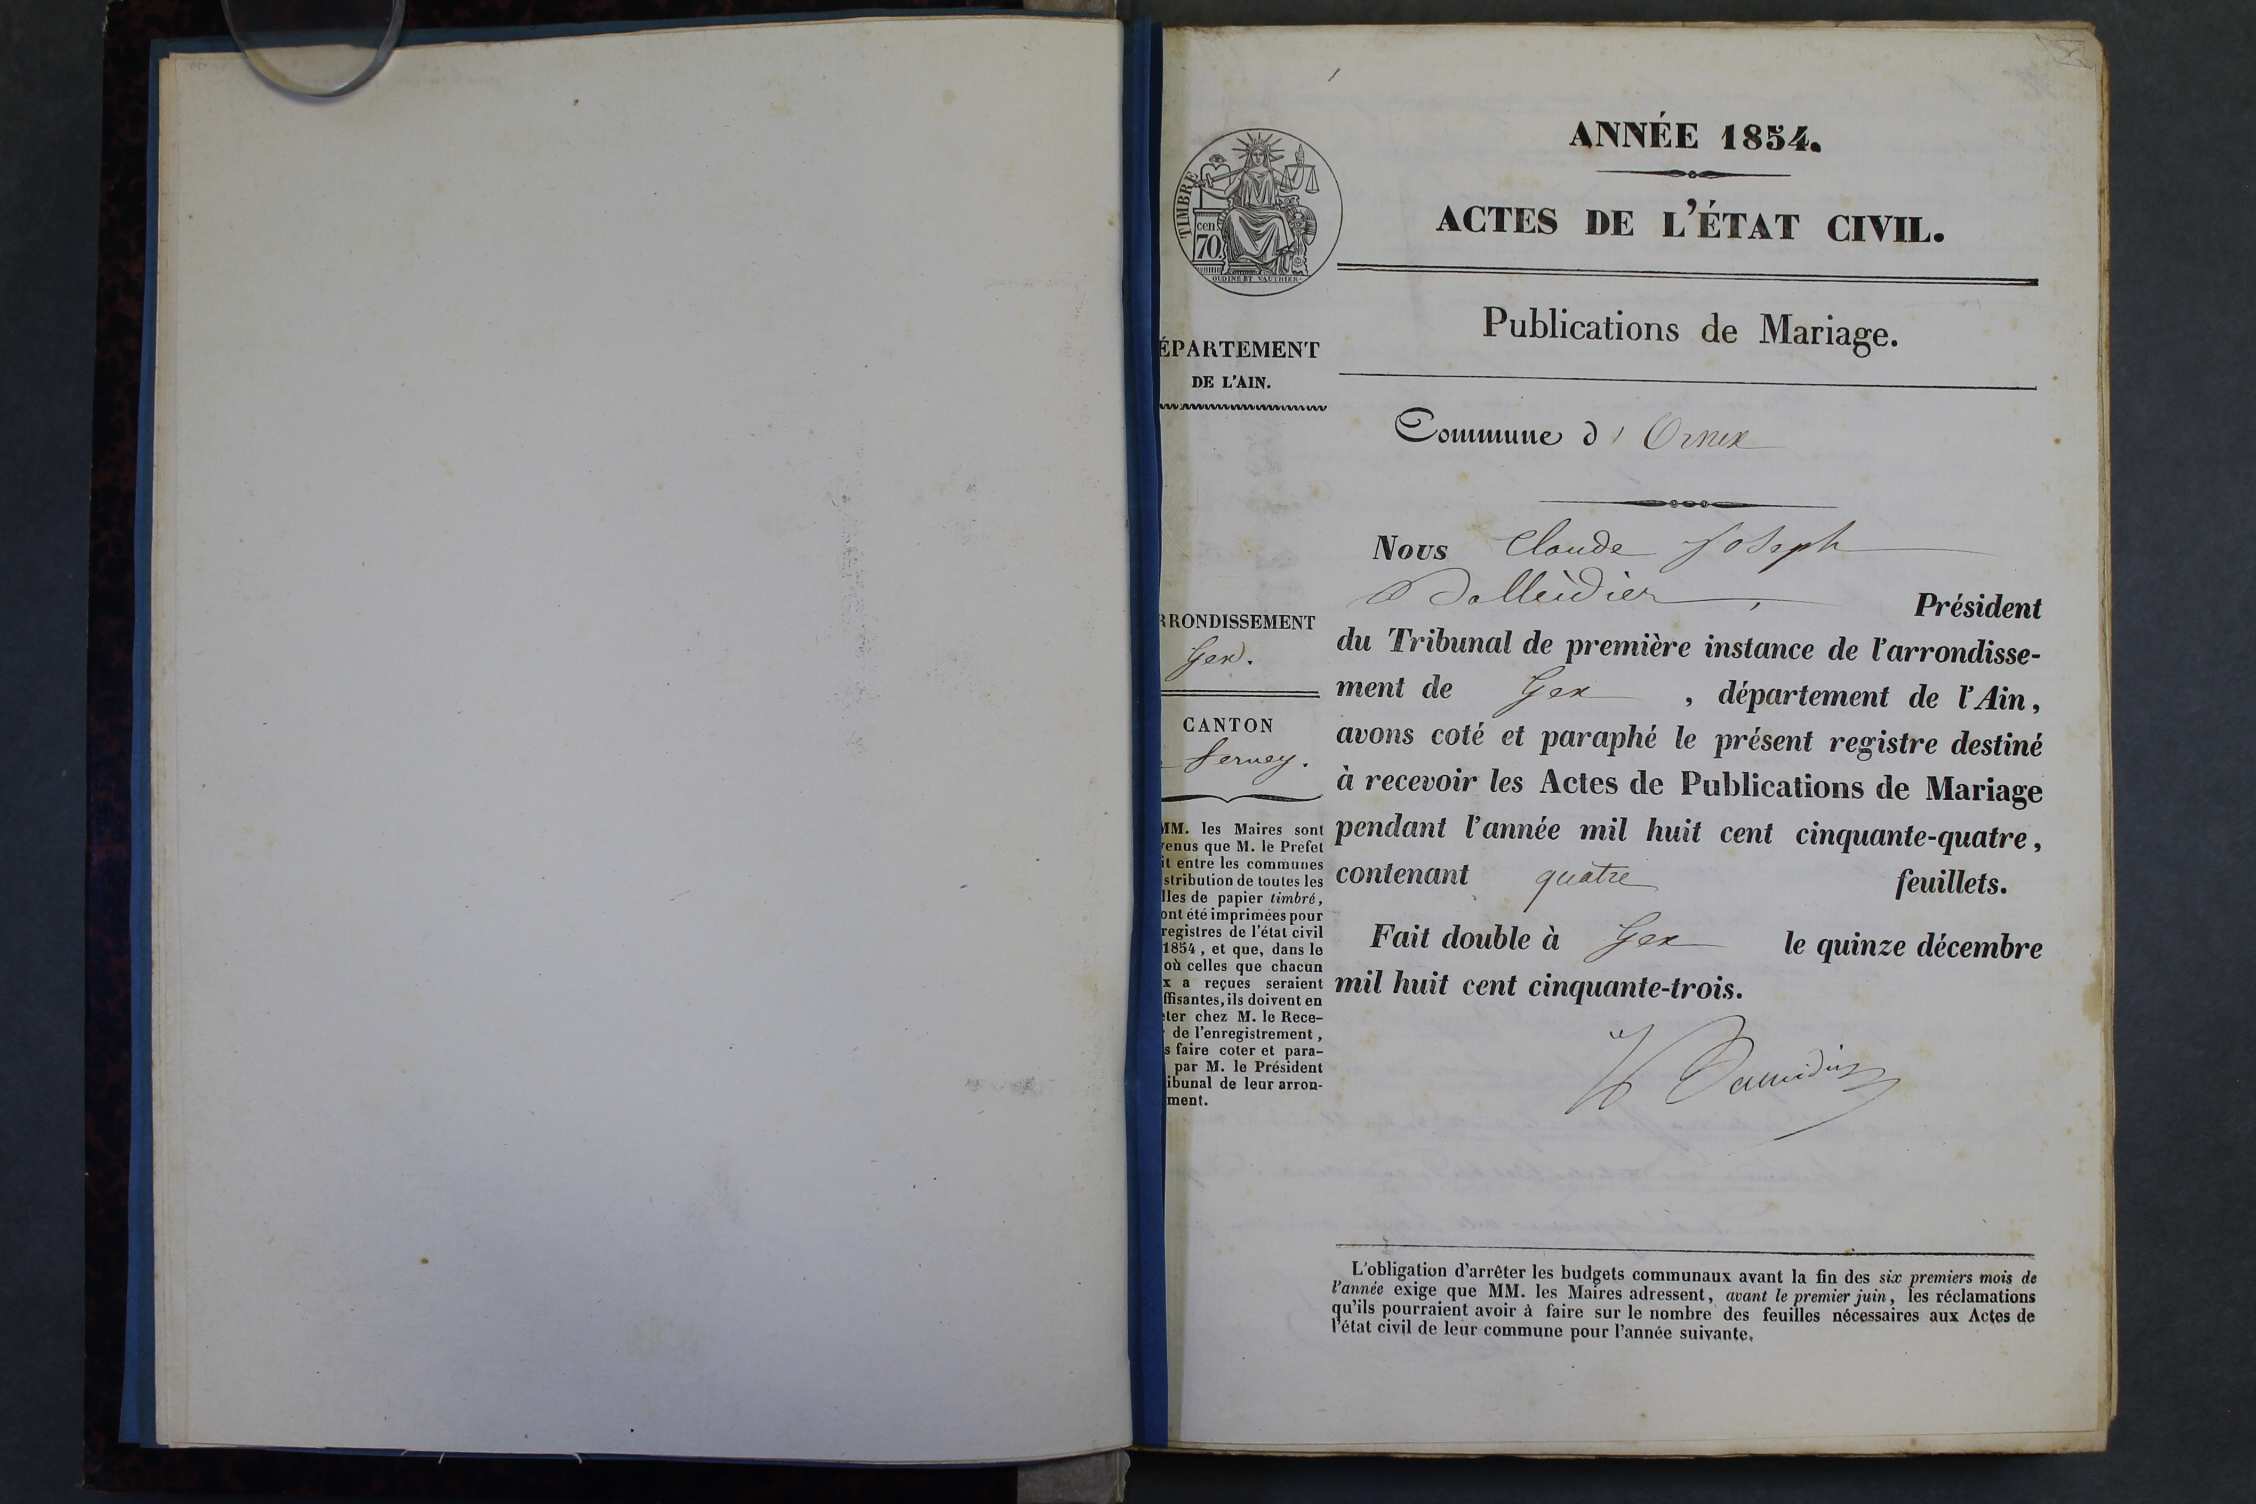 ANNÉE 1854.
ACTES DE L'ÉTAT CIVIL.
Publications de Mariage.
TIMBRE
cen
70.
OUDINE ET VAUTHIER
ÉPARTEMENT
DE L'AIN.
RRONDISSEMENT
Gex.
CANTON
Ferney.
MM. les Maires sont
venus que M. le Prefet
it entre les communes
stribution de toutes les
lles de papier timbré,
ont été imprimées pour
registres de l'état civil
1854, et que, dans le
où celles que chacun
x a reçues seraient
ffisantes, ils doivent en
eter chez M. le Rece-
de l'enregistrement,
s faire coter et para-
par M. le Président
ibunal de leur arron-
ment.
Commune d' Ornex
Nous Claude Joseph
Président
du Tribunal de première instance de l'arrondisse-
ment de Gex, département de l'Ain,
avons coté et paraphé le présent registre destiné
à recevoir les Actes de Publications de Mariage
pendant l'année mil huit cent cinquante-quatre,
contenant quatre feuillets.
Fait double à Gex le quinze décembre
mil huit cent cinquante-trois.
L'obligation d'arrêter les budgets communaux avant la fin des six premiers mois de
l'année exige que MM. les Maires adressent, avant le premier juin, les réclamations
qu'ils pourraient avoir à faire sur le nombre des feuilles nécessaires aux Actes de
l'état civil de leur commune pour l'année suivante.